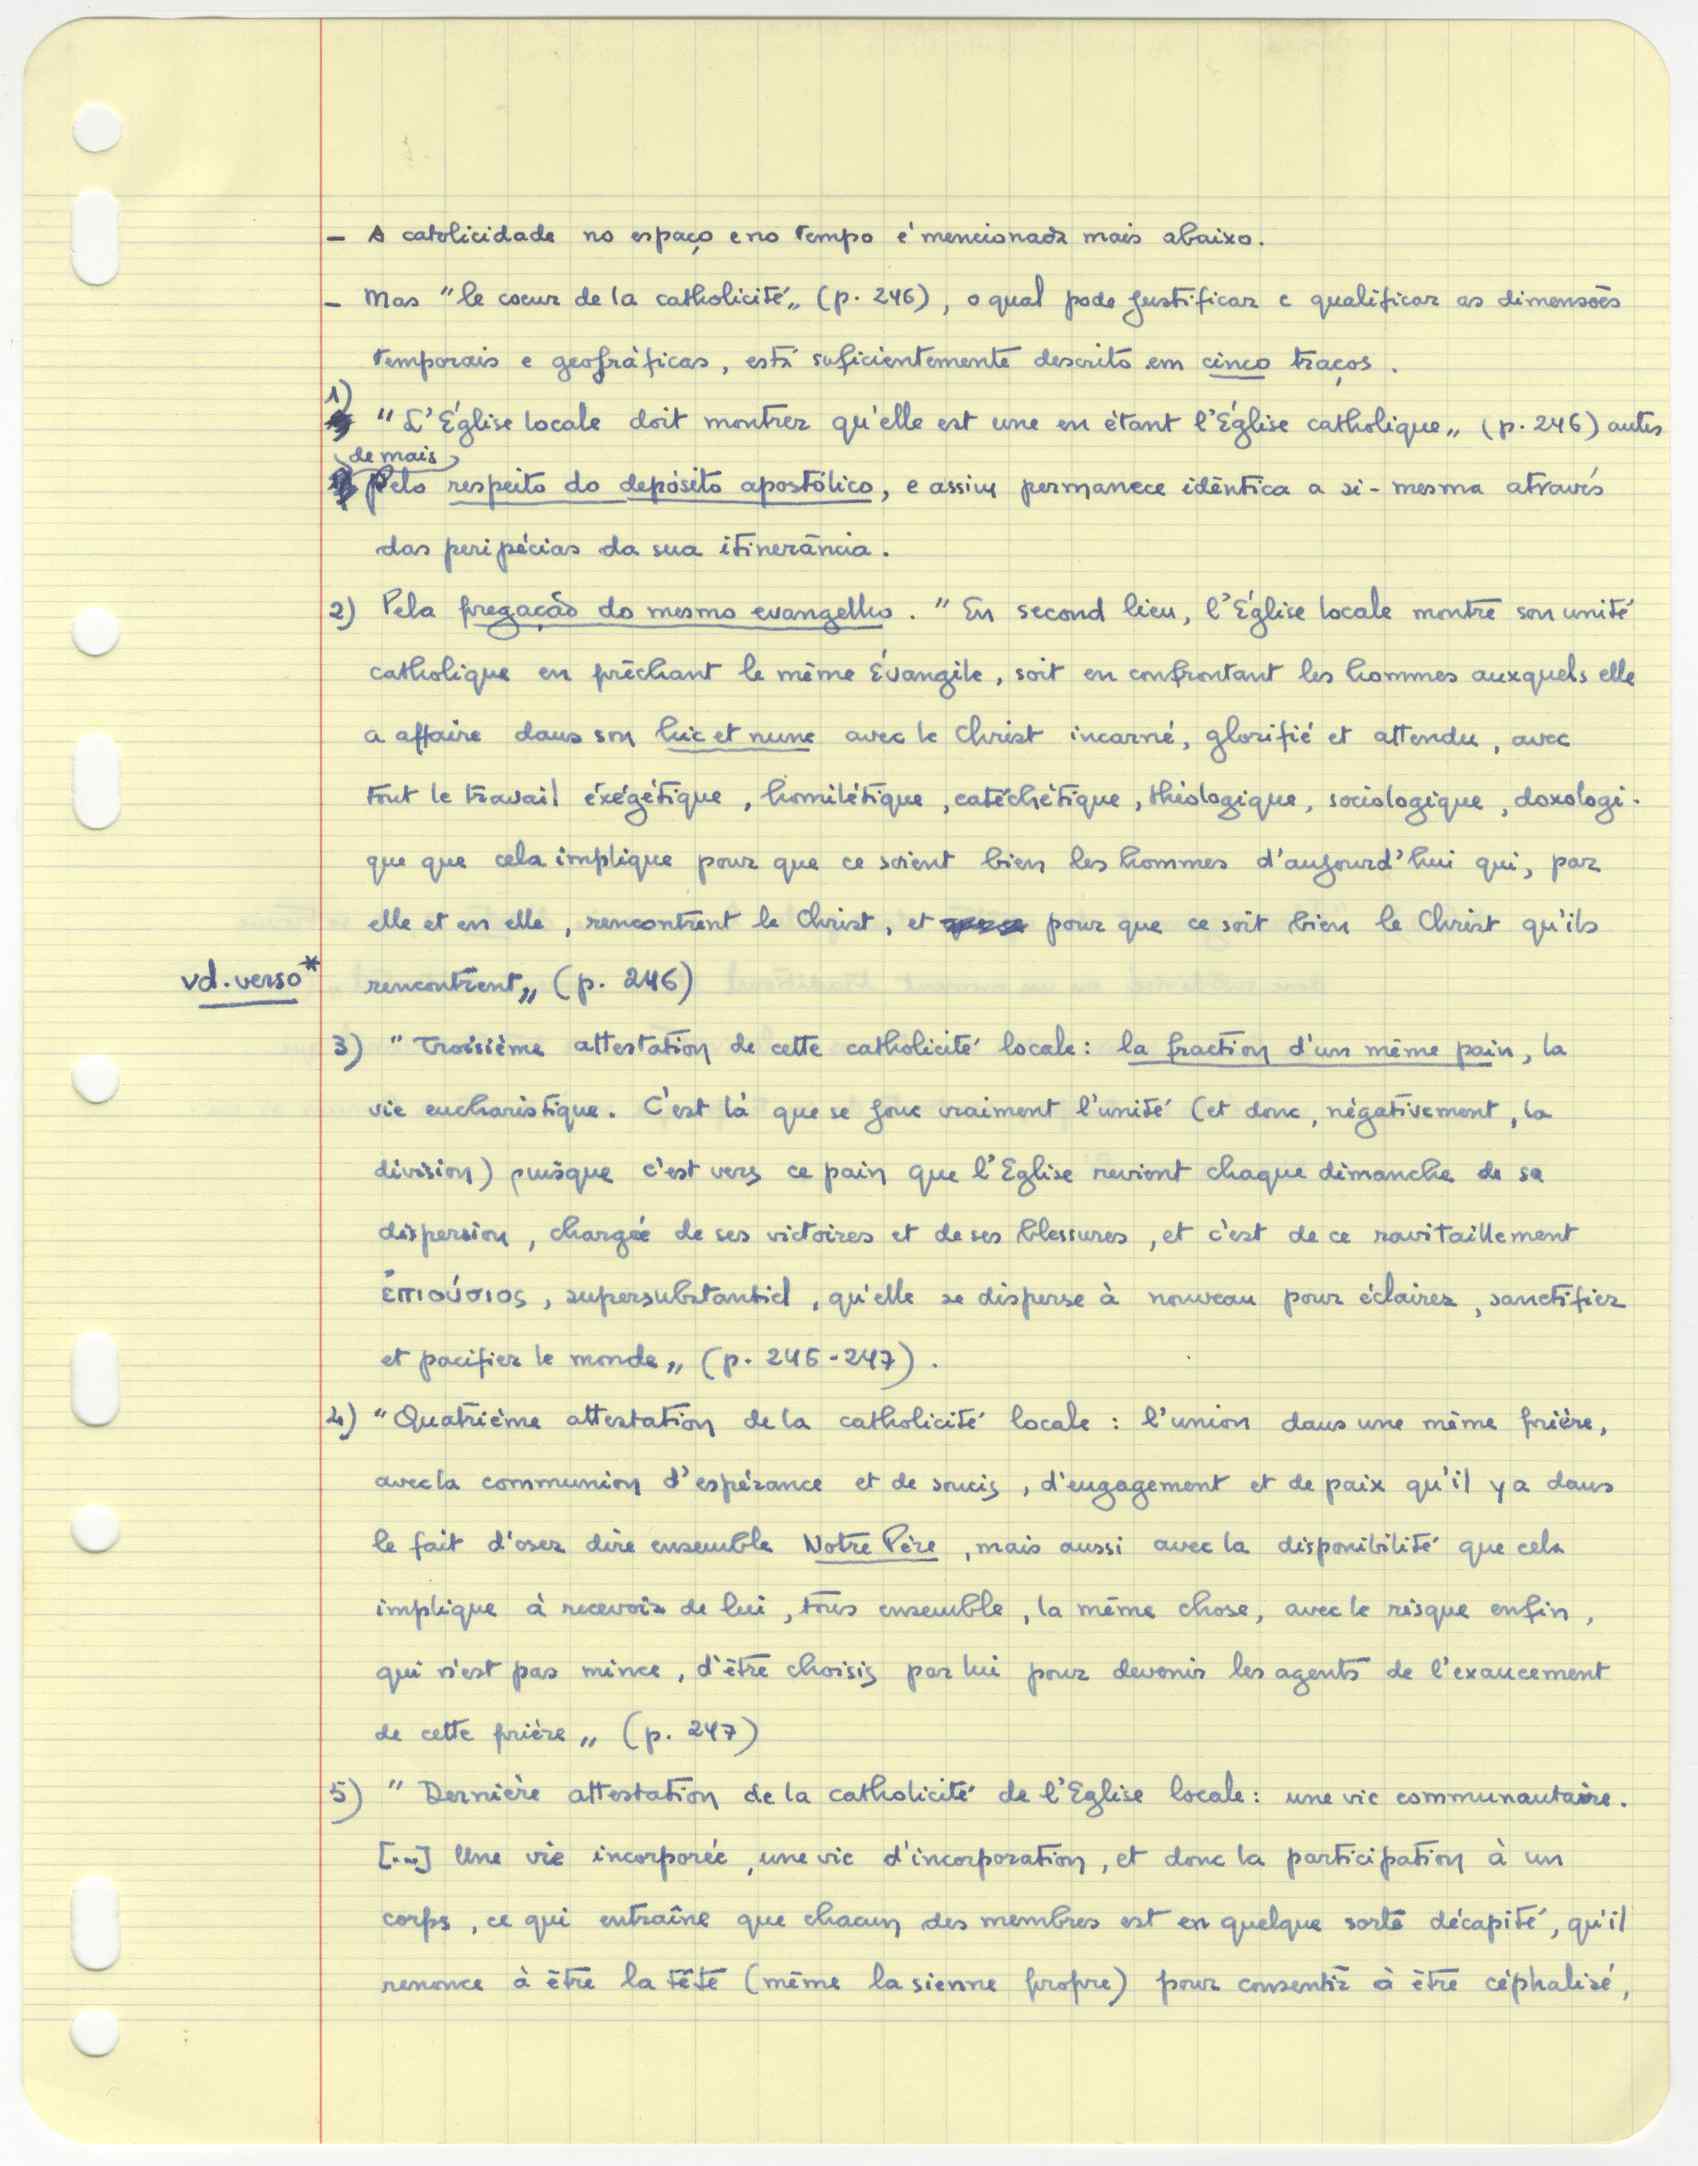 – A catolicidade no espaço e no tempo é mencionada mais abaixo.
– Mas "le coeur de la catholicité„ (p. 246), o qual pode justificar e qualificar as dimensões
temporais e geográficas, está suficientemente descrito em cinco traços.
1) "L'Église locale doit montrer qu'elle est une en étant l'Église catholique„ (p. 246) antes
de mais
pelo respeito do depósito apostólico, e assim permanece idêntica a si-mesma através
das peripécias da sua itinerância.
2) Pela pregação do mesmo evangelho. "En second lieu, l'Église locale montre son unité
catholique en prêchant le même Évangile, soit en confrontant les hommes auxquels elle
a affaire dans son hic et nunc avec le Christ incarné, glorifié et attendu, avec
tout le travail éxégétique, homilétique, catéchétique, théologique, sociologique, doxologi-
que que cela implique pour que ce soient bien les hommes d'aujourd'hui qui, par
elle et en elle, rencontrent le Christ, et pour que ce soit bien le Christ qu'ils
vd. verso* rencontrent„ (p. 246)
3) "Troisième attestation de cette catholicité locale: la fraction d'un même pain, la
vie eucharistique. C'est là que se joue vraiment l'unité (et donc, négativement, la
division) puisque c'est vers ce pain que l'Eglise revient chaque dimanche de sa
dispersion, chargée de ses victoires et de ses blessures, et c'est de ce ravitaillement
ἐπιούσιος, supersubstantiel, qu'elle se disperse à nouveau pour éclairer, sanctifier
et pacifier le monde„ (p. 246-247).
4) "Quatrième attestation de la catholicité locale: l'union dans une même prière,
avec la communion d'espérance et de soucis, d'engagement et de paix qu'il y a dans
le fait d'oser dire ensemble Notre Père, mais aussi avec la disponibilité que cela
implique à recevoir de lui, tous ensemble, la même chose, avec le risque enfin,
qui n'est pas mince, d'être choisis par lui pour devenir les agents de l'exaucement
de cette prière„ (p. 247)
5) "Dernière attestation de la catholicité de l'Eglise locale: une vie communautaire.
[...] Une vie incorporée, une vie d'incorporation, et donc la participation à un
corps, ce qui entraîne que chacun des membres est en quelque sorte décapité, qu'il
renonce à être la tête (même la sienne propre) pour consentir à être céphalisé,